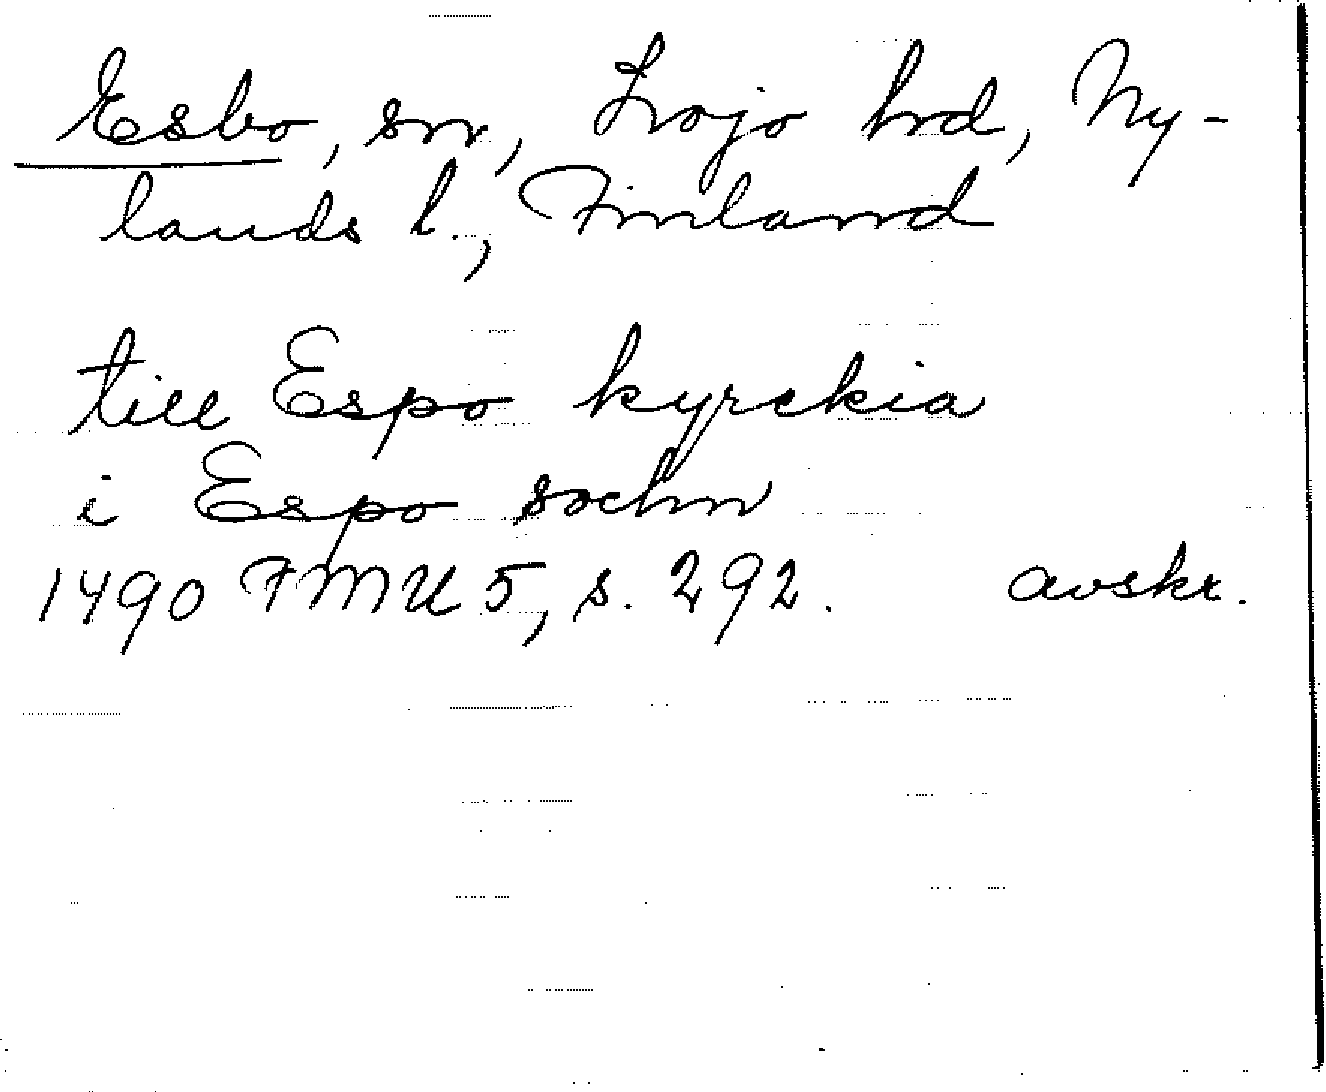 Esbo, sn, Lojo hrd, Ny-
lands l., Finland
till Espo kyrckia
i Espo sochn
1490 FMU 5, s. 292. avskr.